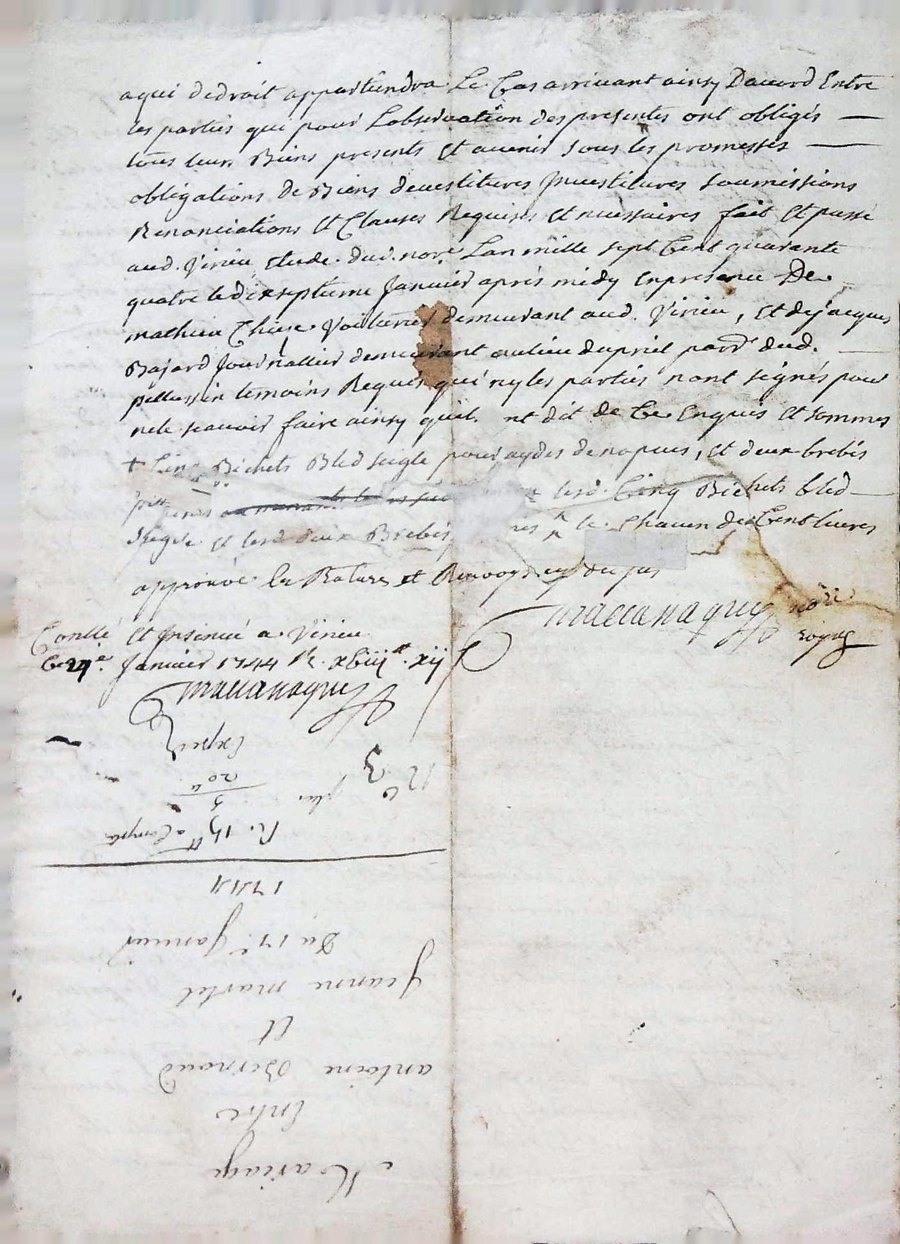 aqui dedroit appartiendra Le Cas arrivant ainsy Daccord Entre
les parties qui pour Lobservation des presentes ont obligés
tous leurs Biens presents Et avenir sous les promesses
obligations de Biens devestitures Investitures soumissions
Renonciations Et Clauses Requises Et necessaires fait Et passé
aud. Virieu Etude dud. nore. Lan mille sept Cent quarante
quatre le dixseptieme Janvier aprés midy Enpresence De
mathieu voiturier demeurant aud. Virieu, Et dejacques
Bajard Journallier demeurant aulieu dupriel parr. dud.
pellussin temoins Requis qui ny les parties nont seignés pour
nele scavoir faire ainsy quils ont dit de Ce Enquis Et sommés
+ Cinq Bichets Bled seigle pour aydes denopces, Et deux brebis
lesd. Cinq Bichets bled
seigle et lesd. deux Brebis le Chacun de Cent livres
approuvé La Rature et Renvoy
nore
royal
Conllé Et Insinué a Virieu
Le 27e. Janvier 1744 R. xviii tt. xii s
Expéd
N° 3
20 4
3
R. a Compte
1744
Du 17e. Janvier
Jeanne martel
Et
antoine Bernoud
Entre
Mariage